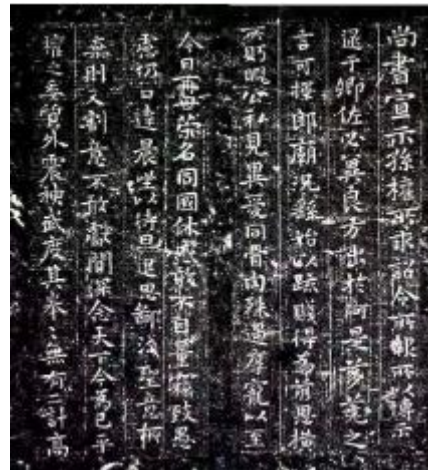 尚書宣示孫權所求詔令所報所以博示
逮于卿佐必冀良方出於阿是芻蕘之
言可擇郎廟況繇始以疏賤得為前恩橫
所盻睨公私見異愛同骨肉殊遇厚寵以至
今日再世榮名同國休慼敢不自量竊致愚
慮仍日達晨坐以待旦退思鄙淺聖意所
棄則又割意不敢獻聞深念天下今為已平
權之委質外震神武度其拳拳無有二計高